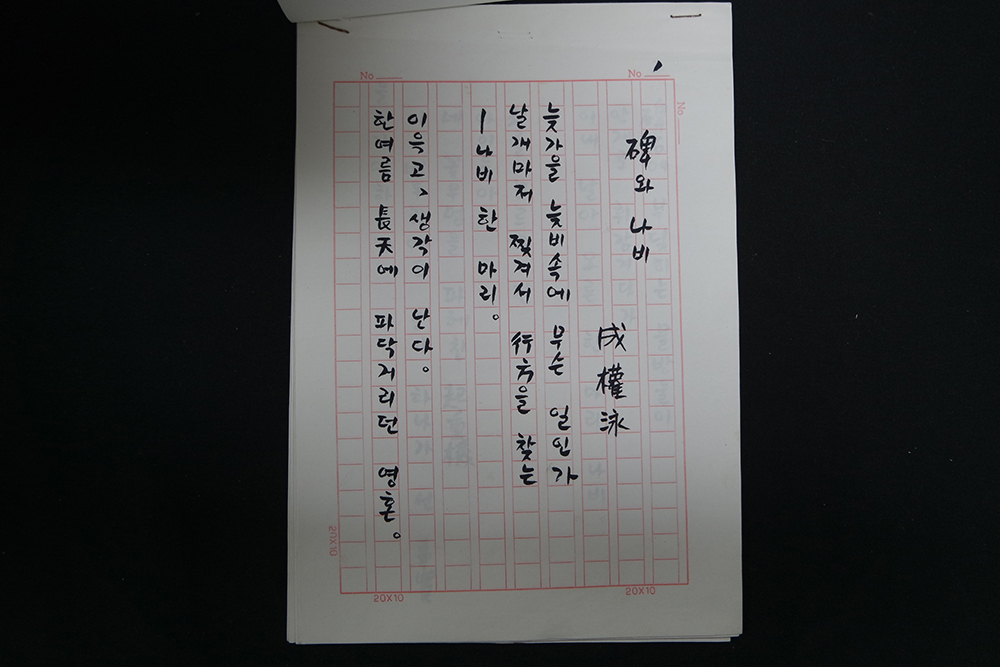 No
No
碑와 나비
成權泳
늦가을 늦비속에 무슨 일인가
날개마저 찢겨서 行方을 찾는
ㅣ나비 한 마리。
이윽고、생각이 난다。
한여름 長天에 파닥거리던 영혼。
20X10
20X10
20X10
No